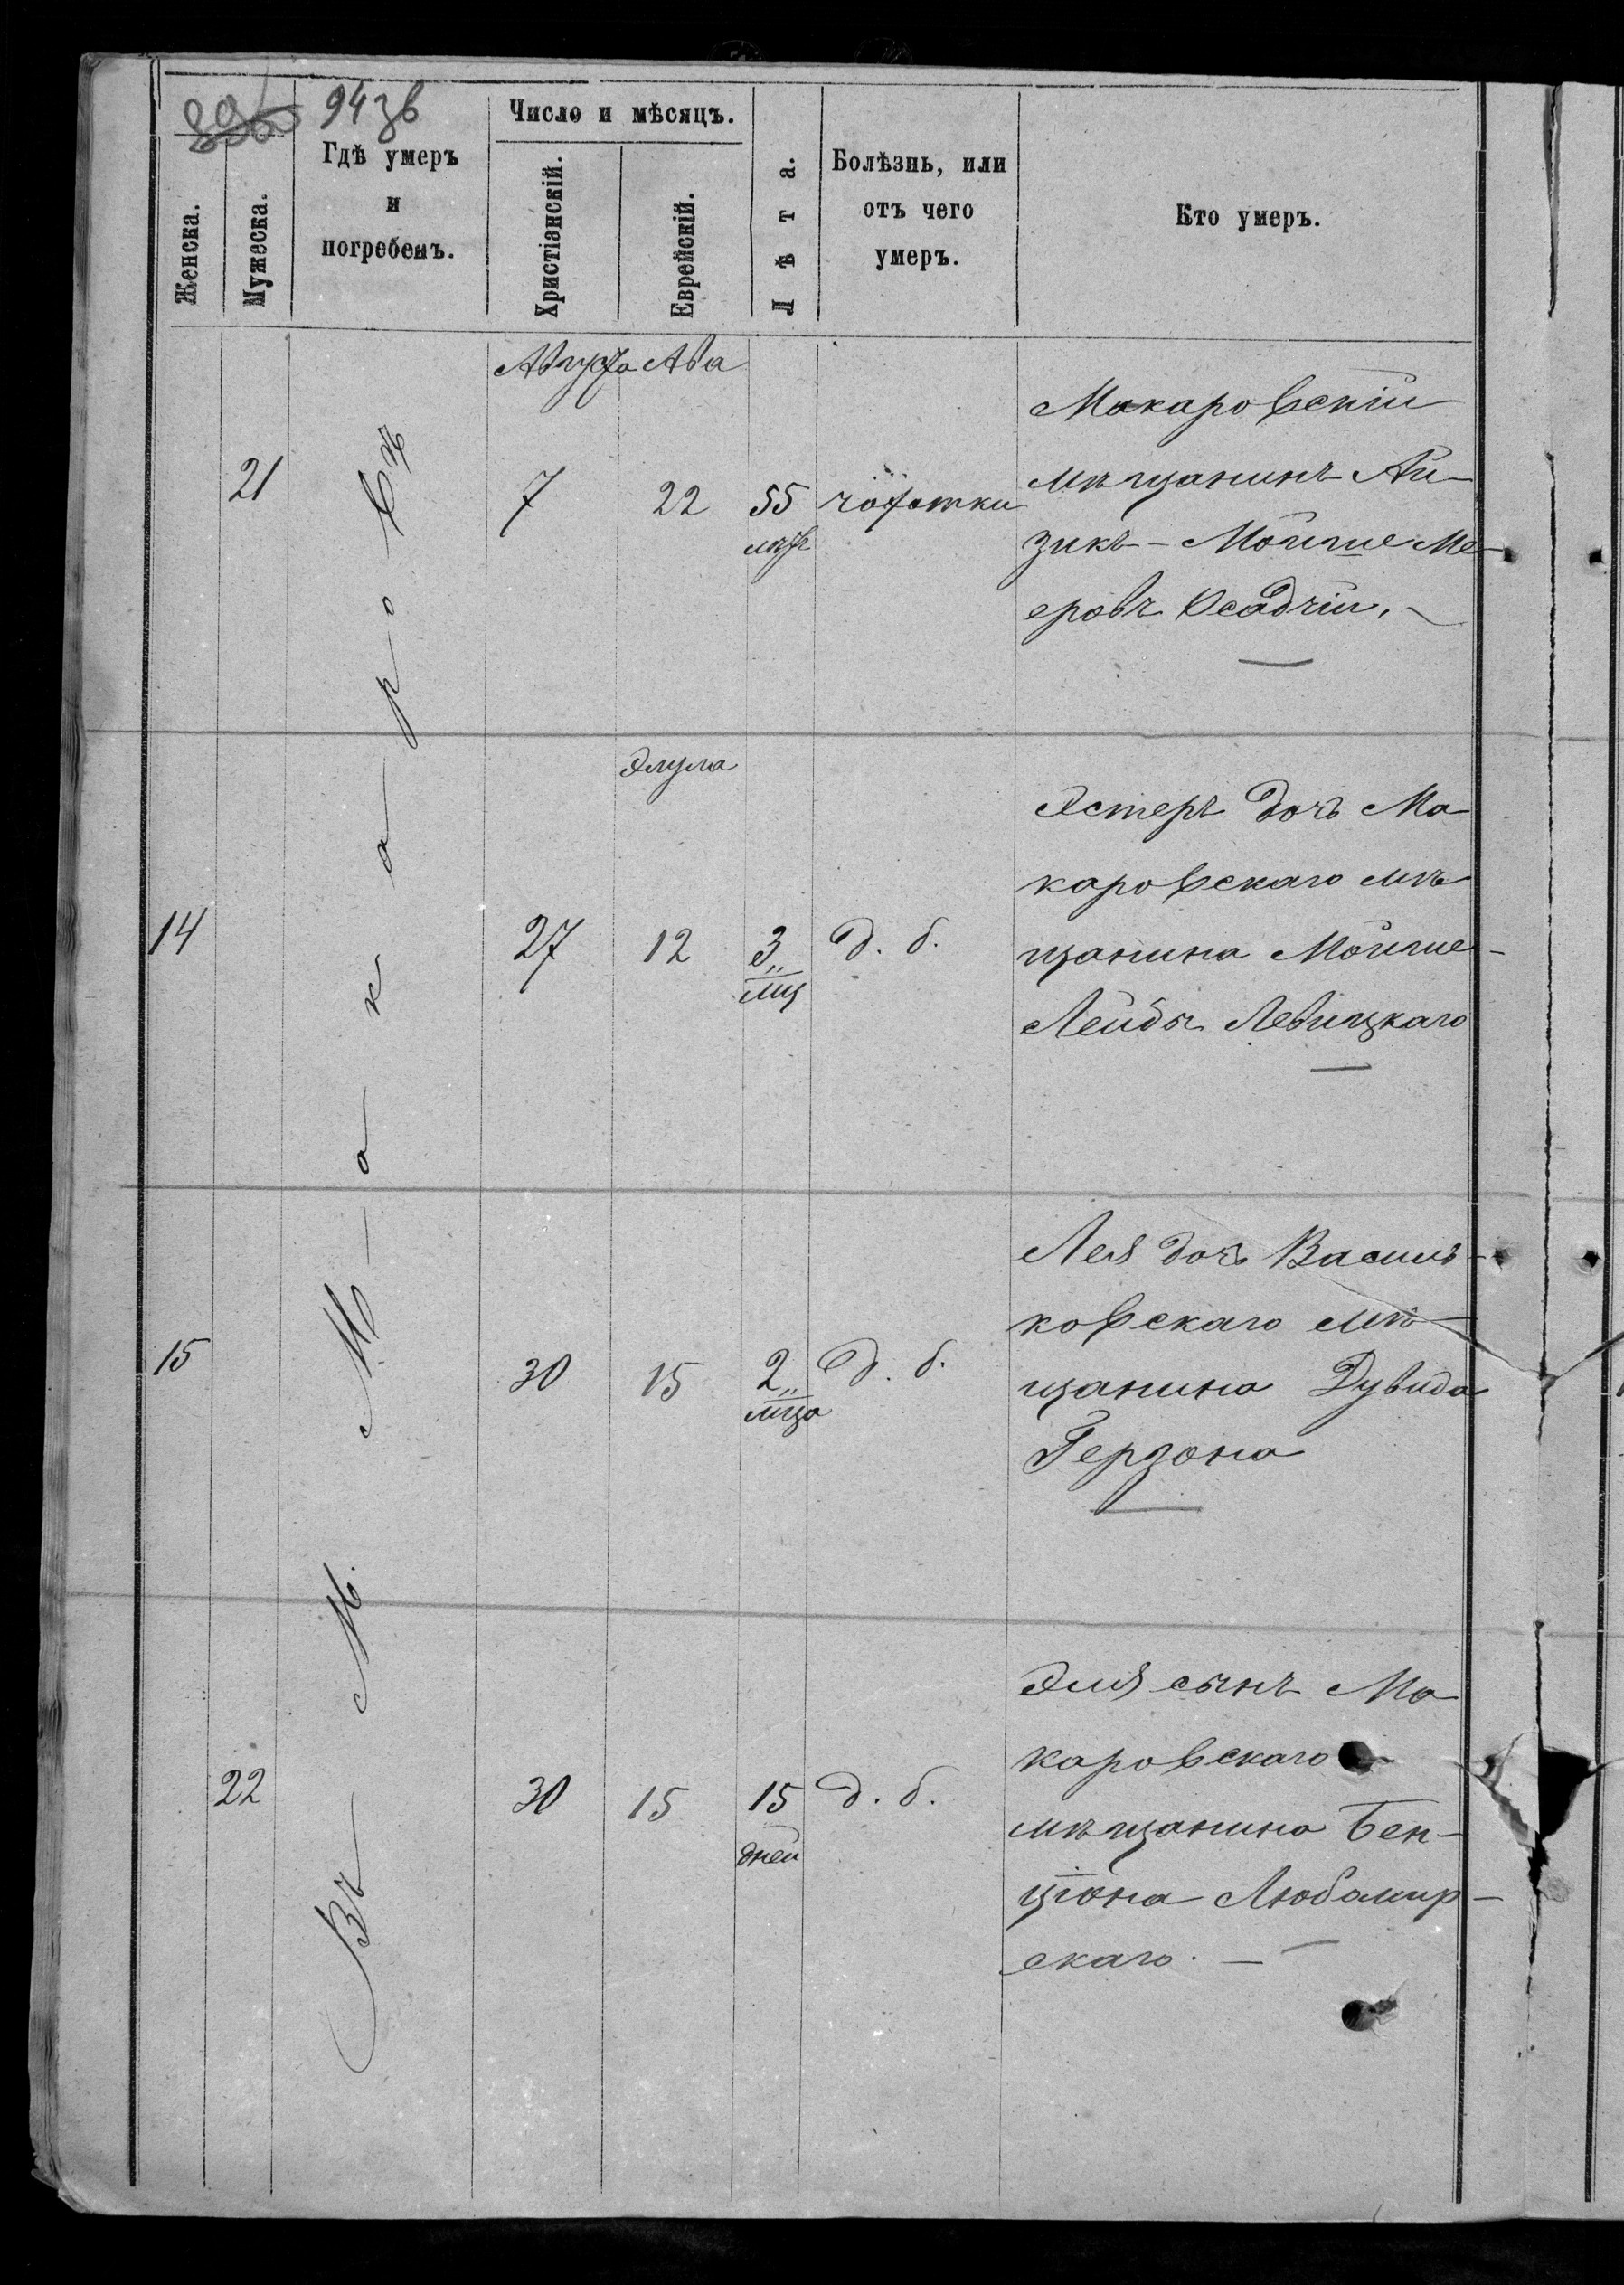 94 зв
Число и мѣсяцъ.
Женска.
Мужеска.
Гдѣ умеръ
и
погребенъ.
Христіанскій.
Еврейскій.
Лѣта.
Болѣзнь, или
отъ чего
умеръ.
Кто умеръ.
Въ М. Макаровѣ
Августа Ава
21 7 22 55 чахотки
лѣтъ
Макаровскій
мѣщанинъ Ай-
зикъ-Мойше Ме-
еровъ Осадчій.
Элула
14 27 12 3
мц
д. б.
Эстеръ дочь Ма
каровскаго мѣ
щанина Мойше-
Лейбы Левицкаго
15 30 15 2
мца
д. б.
Лея дочь Василь-
ковскаго мѣ-
щанина Дувида
Герзона
22 30 15 15
дней
д. б.
Эля сынъ Ма
каровскаго
мѣщанина Бен-
ціона Любомир-
скаго.